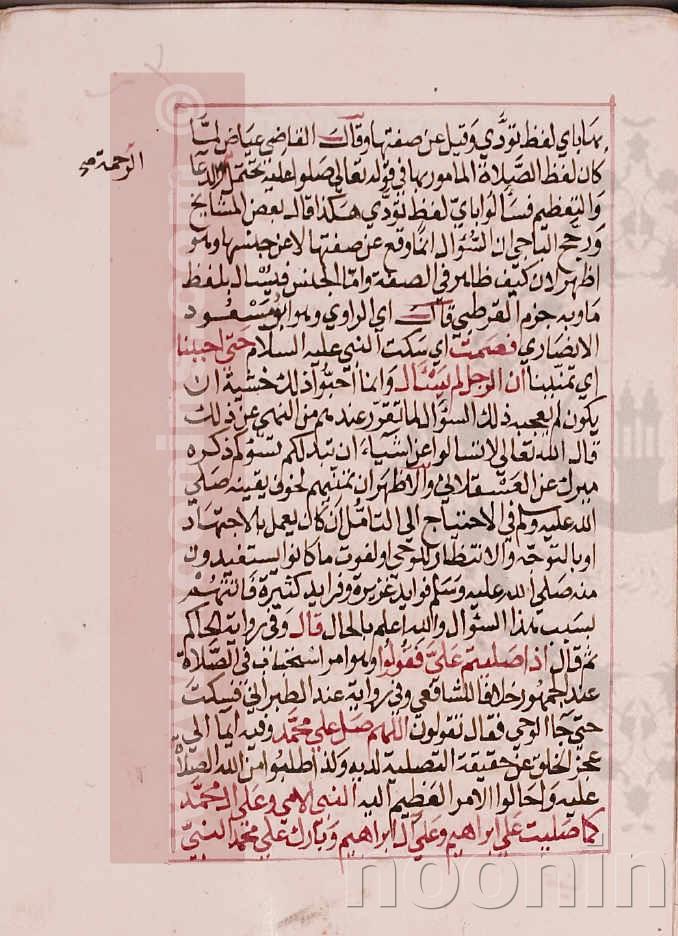 بها باي لفظ نؤدي وقيل عن صفتها وقال القاضي عياض لما
كان لفظ الصلاة المامور بها في قوله تعالى صلوا عليه يحتمل الرحمة والدعا
والتعظيم فسألوا باي لفظ نؤدي هكذا قال بعض المشايخ
ورجح الباجي ان السؤال انما وقع عن صفتها لا عن جنسها وهو
اظهر لان كيف ظاهر في الصفة واما الجنس فيسال بلفظ
ما وبه جزم القرطبي قال اي الراوي وهو ابو مسعود
الانصاري فصمت اي سكت النبي عليه السلام حتى احببنا
اي تمنينا ان الرجل لم يسأل وانما احبوا ذلك خشية ان
يكون لم يعجبه ذلك السؤال لما تقرر عندهم من النهي عن ذلك
قال الله تعالى لا تسالوا عن اشياء ان تبد لكم تسؤكم ذكره
ميرك عن العسقلاني والاظهر ان تمنيهم لخوف يقينه صلى
الله عليه وسلم في الاحتياج الى التامل ان كان يعمل بالاجتهاد
او بالتوجه والانتظار للوحي ولفوت ما كانوا يستفيدون
منه صلى الله عليه وسلم فوايد غزيرة وفرايد كثيرة فانتهم
بسبب هذا السؤال والله اعلم بالحال قال وفي رواية الحاكم
ثم قال اذا صليتم علي فقولوا وهو امر استحباب في الصلاة
عند الجمهور خلافا للشافعي وفي رواية عند الطبراني فسكت
حتى جا الوحي فقال تقولون اللهم صل على محمد وفيه ايما الى
عجز الخلق عن حقيقة التصلية لديه ولذا طلبوا من الله الصلاة
عليه واحالوا الامر العظيم اليه النبي الامي وعلى ال محمد
كما صليت على ابراهيم وعلى آل ابراهيم وبارك على محمد النبي
الرحمة صح
noonin